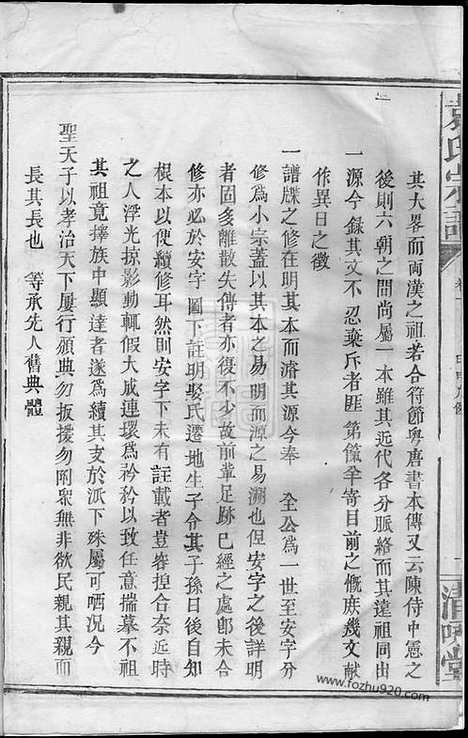 袁氏宗譜
其大畧而兩漢之祖若合符節粤唐書本傳又云陳侍中憲之
後則六朝之間尚屬一本雖其近代各分脈絡而其遠祖同出
一源今錄其文不忍棄斥者匪第餼羊寄目前之慨庶幾文献
作異日之徵
一譜牒之修在明其本而濬其源今奉 全公爲一世至安字分
修爲小宗蓋以其本之易明而源之易溯也但安字之後詳明
者固多離散失傳者亦復不少故前輩足跡已經之處卽未合
修亦必於安字圖下註明娶氏遷地生子令其子孫日後自知
根本以便續修耳然則安字下未有註載者豈容揑合奈近時
之人浮光掠影動輒假大成連環爲衿矜以致任意揣摹不祖
其祖竟擇族中顯達者遂爲續其支於派下殊屬可哂况今
聖天子以孝治天下屢行頒典勿扳援勿附衆無非欲民親其親而
長其長也 等承先人舊典體
清暉堂
www.fozhu920.com